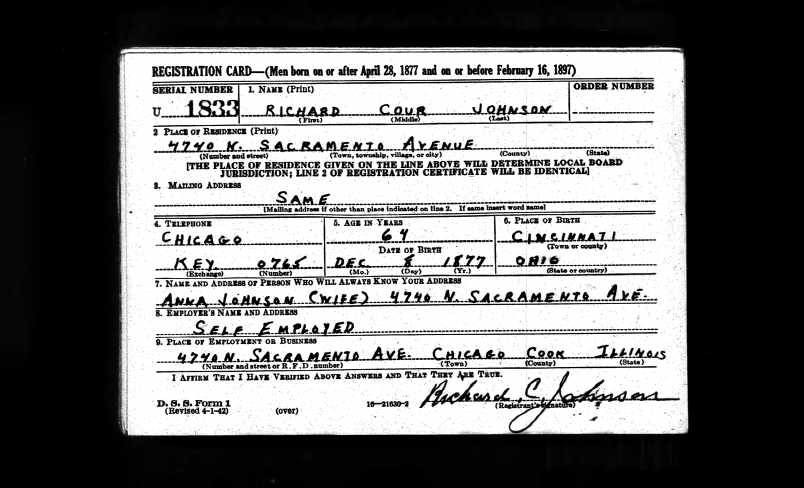 REGISTRATION CARD—(Men born on or after April 28, 1877 and on or before February 16, 1897)
SERIAL NUMBER 1. NAME (Print) ORDER NUMBER
U 1833 RICHARD COUR JOHNSON
(First) (Middle) (Last)
2 PLACE OF RESIDENCE (Print)
4740 N. SACRAMENTO AVENUE
(Number and street) (Town, township, village, or city) (County) (State)
[THE PLACE OF RESIDENCE GIVEN ON THE LINE ABOVE WILL DETERMINE LOCAL BOARD
JURISDICTION; LINE 2 OF REGISTRATION CERTIFICATE WILL BE IDENTICAL]
3. MAILING ADDRESS
SAME
[Mailing address if other than place indicated on line 2. If same insert word same]
4. TELEPHONE 5. AGE IN YEARS 6. PLACE OF BIRTH
CHICAGO 64 CINCINNATI
DATE OF BIRTH (Town or county)
KEY 0765 DEC 8 1877 OHIO
(Exchange) (Number) (Mo.) (Day) (Yr.) (State or country)
7. NAME AND ADDRESS OF PERSON WHO WILL ALWAYS KNOW YOUR ADDRESS
ANNA JOHNSON (WIFE) 4740 N. SACRAMENTO AVE.
8. EMPLOYER'S NAME AND ADDRESS
SELF EMPLOYED
9. PLACE OF EMPLOYMENT OR BUSINESS
4740 N. SACRAMENTO AVE. CHICAGO COOK ILLINOIS
(Number and street or R. F. D. number) (Town) (County) (State)
I AFFIRM THAT I HAVE VERIFIED ABOVE ANSWERS AND THAT THEY ARE TRUE.
D. S. S. Form 1 Richard C. Johnson
(Revised 4-1-42) (over) 16—21630-2 (Registrant's signature)